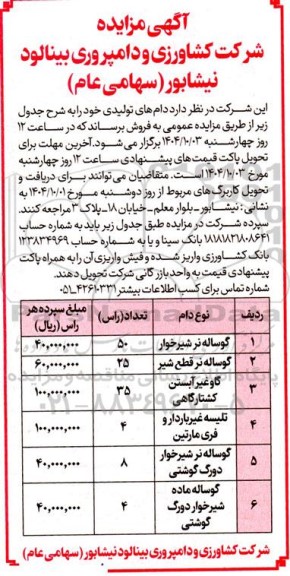 آگهی مزایده
شرکت کشاورزی و دامپروری بینالود
نیشابور (سهامی عام)
این شرکت در نظر دارد دام های تولیدی خود را به شرح جدول
زیر از طریق مزایده عمومی به فروش برساند که در ساعت ۱۲
روز چهارشنبه ۱۴۰۴/۱۰/۰۳ برگزار می شود. آخرین مهلت برای
تحویل پاکت قیمت های پیشنهادی ساعت ۱۲ روز چهارشنبه
مورخ ۱۴۰۴/۱۰/۰۳ است. متقاضیان می توانند برای دریافت و
تحویل کاربرگ های مربوط از روز دوشنبه مورخ ۱۴۰۴/۱۰/۰۱ به
نشانی: نیشابور - بلوار معلم - خیابان ۱۸ - پلاک ۳ مراجعه کنند.
سپرده شرکت در مزایده طبق جدول زیر باید به شماره حساب
بانک سینا و یا به شماره حساب ۱۲۳۸۳۴۹۶۹
بانک کشاورزی واریز شده و فیش واریزی آن را به همراه پاکت
پیشنهادی قیمت به واحد بازرگانی شرکت تحویل دهند.
شماره تماس برای کسب اطلاعات بیشتر ۰۵۱-۴۲۶۱۳۳۱
ردیف نوع دام تعداد(راس) مبلغ سپرده هر راس (ریال)
۱ گوساله نر شیرخوار ۵۰ ۴۰،۰۰۰،۰۰۰
۲ گوساله نر قطع شیر ۲۵ ۶۰،۰۰۰،۰۰۰
۳ گاو غیر آبستن کشتارگاهی ۳۵ ۱۰۰،۰۰۰،۰۰۰
۴ تلیسه غیر باردار و فری مارتین ۴ ۱۰۰،۰۰۰،۰۰۰
۵ گوساله نر شیرخوار دورگ گوشتی ۸ ۴۰،۰۰۰،۰۰۰
۶ گوساله ماده شیرخوار دورگ گوشتی ۴ ۴۰،۰۰۰،۰۰۰
شرکت کشاورزی و دامپروری بینالود نیشابور (سهامی عام)